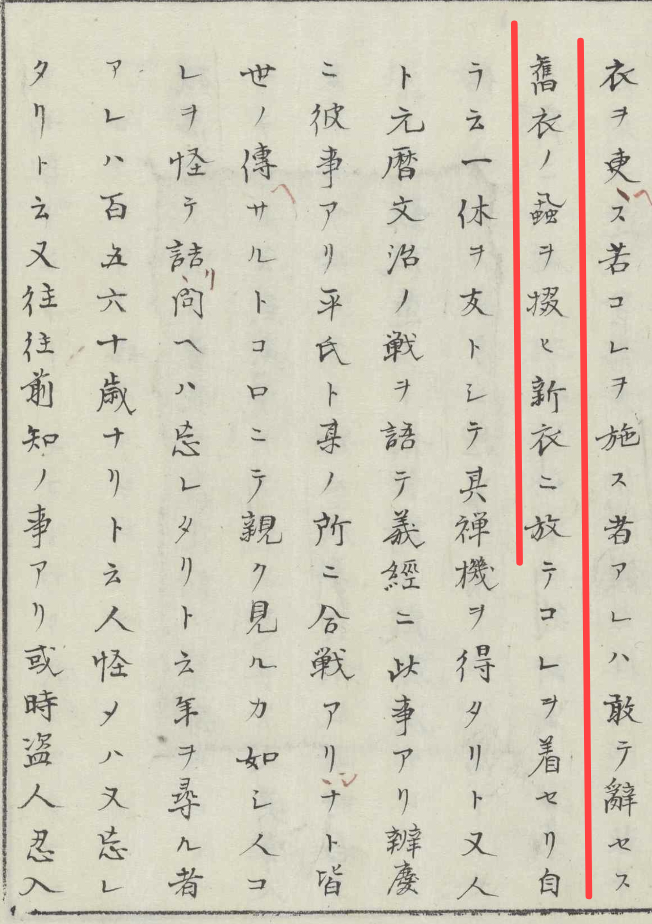 衣ヲ更ス若コレヲ施ス者アレハ敢テ辭セス
舊衣ノ蝨ヲ掇ヒ新衣ニ放テコレヲ着セリ自
ラ云一休ヲ友トシテ具禅機ヲ得タリト又人
ト元暦文治ノ戦ヲ語テ義經ニ此事アリ辨慶
ニ彼事アリ平氏ト某ノ所ニ合戦アリナト皆
世ノ傳サルトコロニテ親ク見ルカ如シ人コ
レヲ怪テ詰問ヘハ忘レタリト云年ヲ尋ル者
アレハ百五六十歳ナリト云人怪メハ又忘レ
タリト云又往往前知ノ事アリ或時盗人忍入